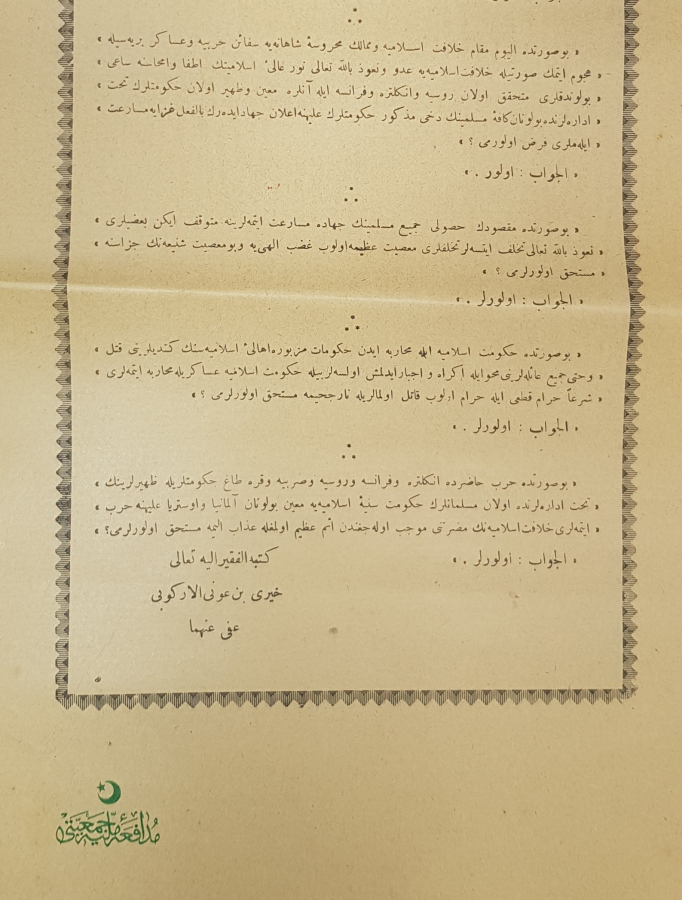 « بوصورتده اليوم مقام خلافت اسلاميه وممالك محروسهٔ شاهانه‌يه سفائن حربيه وعساكر بريه‌سيله »
« هجوم ايتمك صورتيله خلافت‌اسلاميه‌يه عدو ونعوذ بالله تعالى نور عالىٔ اسلاميتك اطفا وامحاسنه ساعى »
« بولوندقلرى متحقق اولان روسيه وانكلتره وفرانسه ايله آنلره معين وظهير اولان حكومتلرك تحت »
« اداره‌لرنده‌بولونان‌كافهٔ مسلمينك دخى مذكور حكومتلرك عليهنه‌اعلان جهادايده‌رك‌بالفعل‌غزايه‌مسارعت »
« ايله‌ملرى فرض اولورمى ؟ »
« الجواب : اولور . »
« بوصورتده مقصودك حصولى جميع مسلمينك جهاده مسارعت ايتمه‌لرينه متوقف ايكن بعضيلرى »
« نعوذ بالله تعالى تخلف ايتسه‌لر تخلفلرى معصيت عظيمه‌اولوب غضب الهى‌يه وبومعصيت شنيعه‌نك جزاسنه »
« مستحق اولورلرمى ؟ »
« الجواب : اولورلر . »
« بوصورتده حكومت اسلاميه ايله محاربه ايدن حكومات مزبوره‌اهالىٔ اسلاميه‌سنك كنديلرينى قتل »
« وحتى جميع عائله‌لرينى محوايله اكراه و اجبارايدلمش اولسه‌لربيله حكومت اسلاميه عساكريله‌محاربه ايتمه‌لرى »
« شرعاً حرام قطعى ايله حرام اولوب قاتل اولمالريله نارجحيمه مستحق اولورلرمى ؟ »
« الجواب : اولورلر . »
« بوصورتده حرب حاضرده انكلتره وفرانسه وروسيه وصربيه وقره طاغ حكومتلريله ظهيرلرينك »
« تحت اداره‌لرنده اولان مسلمانلرك حكومت سنيهٔ اسلاميه‌يه معين بولونان آلمانيا واوستريا عليهنه حرب »
« ايتمه‌لرى خلافت‌اسلاميه‌نك مضرتنى موجب اوله‌جغندن اثم عظيم اولمغله عذاب اليمه مستحق اولورلرمى؟ »
« الجواب : اولورلر . »
كتبه‌الفقيراليه تعالى
خيرى بن‌عونى‌الاركوبى
عفى عنهما
مدافعهٔ مليه جمعيتى